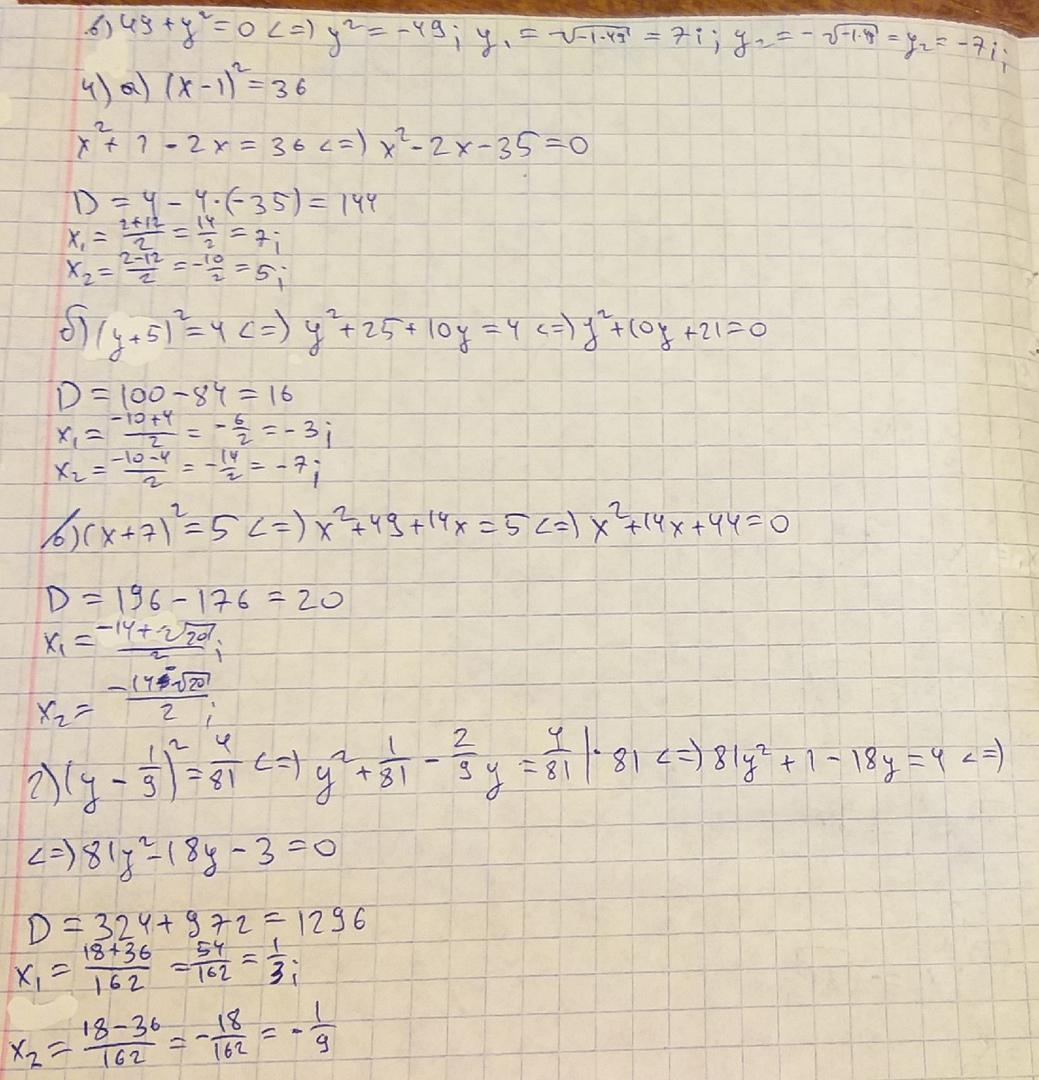 в) 49 + y² = 0 <=> y² = -49; y₁ = √-1·49 = 7i; y₂ = -√-1·49 = y₂ = -7i;
4) а) (x-1)² = 36
x² + 1 - 2x = 36 <=> x² - 2x - 35 = 0
D = 4 - 4·(-35) = 144
x₁ = (2+12)/2 = 14/2 = 7;
x₂ = (2-12)/2 = -10/2 = 5;
б) (y+5)² = 4 <=> y² + 25 + 10y = 4 <=> y² + 10y + 21 = 0
D = 100 - 84 = 16
x₁ = (-10+4)/2 = -6/2 = -3;
x₂ = (-10-4)/2 = -14/2 = -7;
в) (x+7)² = 5 <=> x² + 49 + 14x = 5 <=> x² + 14x + 44 = 0
D = 196 - 176 = 20
x₁ = (-14+√20)/2;
x₂ = (-14-√20)/2;
г) (y - 1/9)² = 4/81 <=> y² + 1/81 - 2/9 y = 4/81 |·81 <=> 81y² + 1 - 18y = 4 <=>
<=> 81y² - 18y - 3 = 0
D = 324 + 972 = 1296
x₁ = (18+36)/162 = 54/162 = 1/3;
x₂ = (18-36)/162 = -18/162 = -1/9